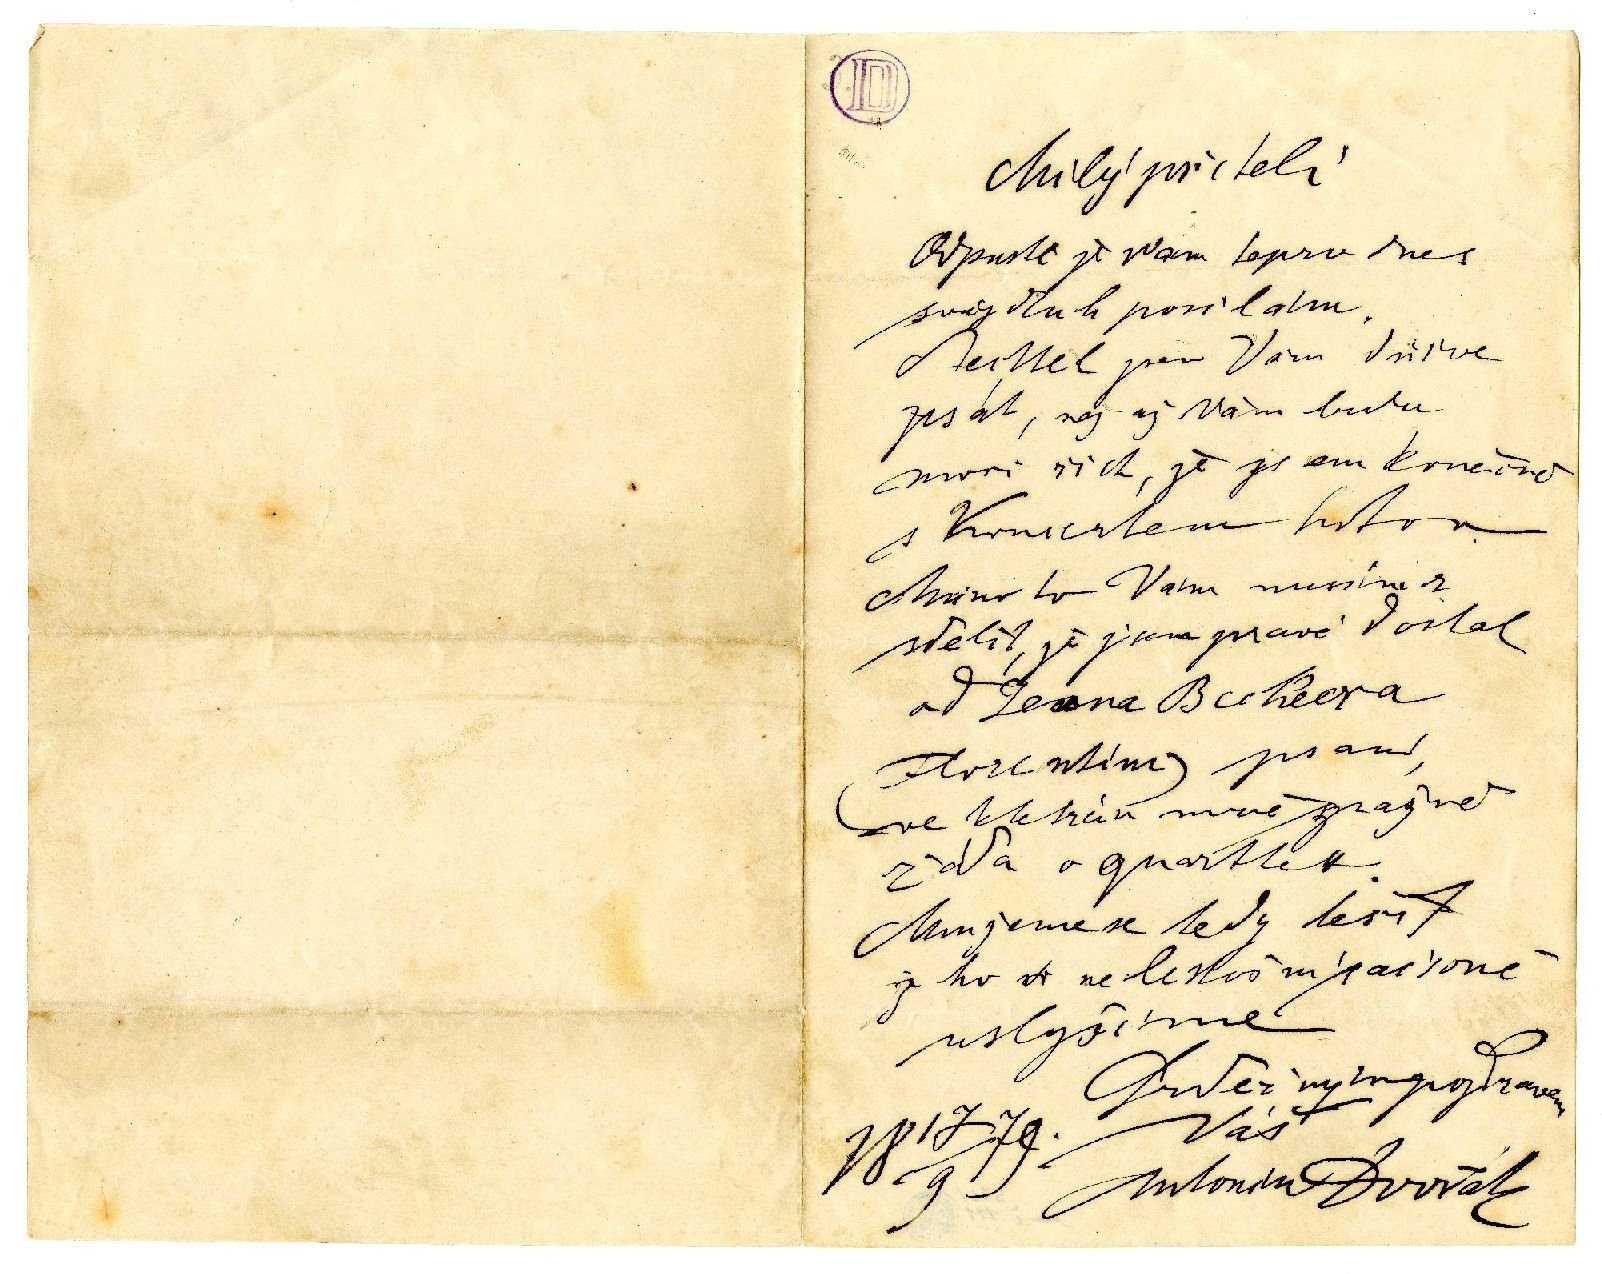 Milý příteli
Odpusťe že Vám teprv dnes
svůj dluh posílám.
Nechtěl jsem Vám dříve
psát, než až Vám budu
moci říct, že jsem konečně
s Koncertem hotov
Mimo to Vám musím z
sdělit, že jsem právě dostal
od Jeana Beckera
(Florentin) psaní,
ve kterém mně snažně
žádá o quartett.
Mužeme se tedy těšit
že ho v letošní saisoně
uslyšíme
Srdečným pozdravem
Váš
18 17/9 79.
Antonín Dvořák